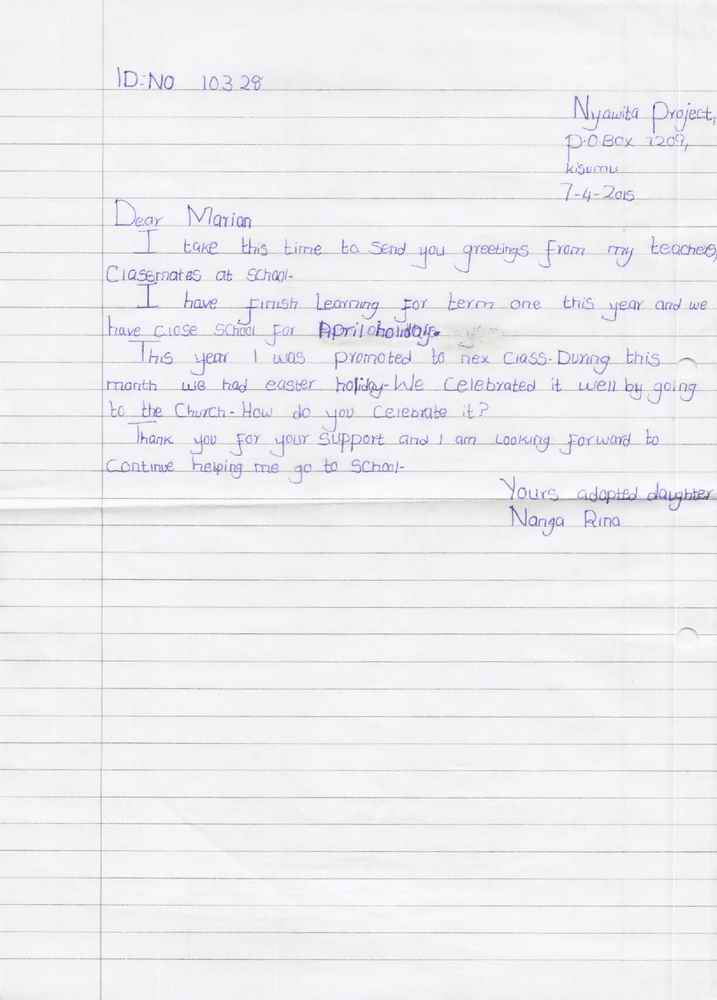 ID:NO 10328
Nyawita Project,
P.O BOX 7209,
Kisumu
7-4-2015
Dear Marian
I take this time to send you greetings from my teachers,
Classmates at school.
I have finish Learning for term one this year and we
have close school for April holidays.
This year I was promoted to nex class. During this
month we had easter holiday. We celebrated it well by going
to the Church. How do you celebrate it?
Thank you for your support and I am Looking forward to
Continue helping me go to school.
Yours adopted daughter
Nanga Rina